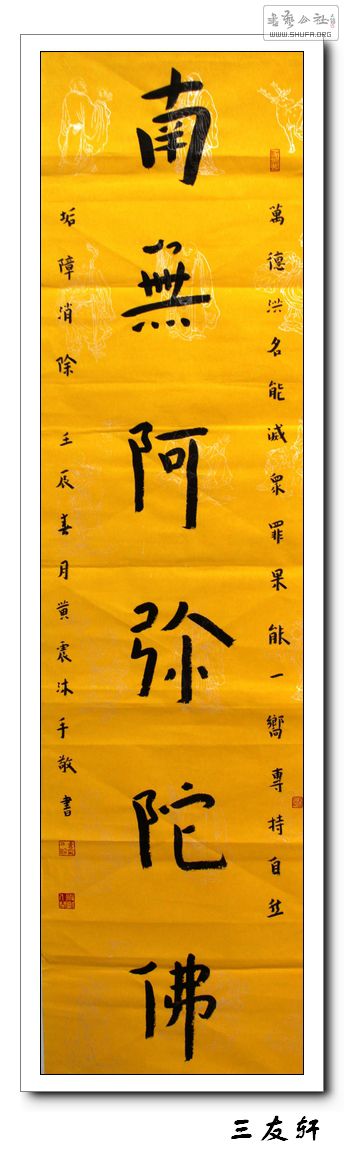 書藝公社
WWW.SHUFA.ORG
南無阿弥陀佛
萬德洪名能滅眾罪果能一嚮專持自然
垢障消除 壬辰春月黄震沐手敬書
三友轩